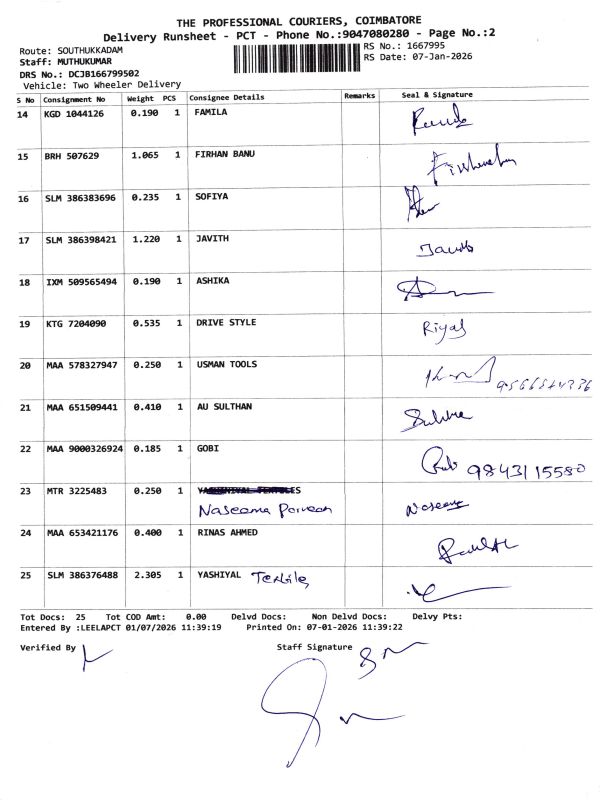 THE PROFESSIONAL COURIERS, COIMBATORE
Delivery Runsheet - PCT - Phone No.:9047080280 - Page No.:2
Route: SOUTHUKKADAM
RS No.: 1667995
Staff: MUTHUKUMAR
RS Date: 07-Jan-2026
DRS No.: DCJB166799502
Vehicle: Two Wheeler Delivery
S No Consignment No Weight PCS Consignee Details Remarks Seal & Signature
14 KGD 1044126 0.190 1 FAMILA
15 BRH 507629 1.065 1 FIRHAN BANU
16 SLM 386383696 0.235 1 SOFIYA
17 SLM 386398421 1.220 1 JAVITH
18 IXM 509565494 0.190 1 ASHIKA
19 KTG 7204090 0.535 1 DRIVE STYLE Riyas
20 MAA 578327947 0.250 1 USMAN TOOLS
21 MAA 651509441 0.410 1 AU SULTHAN
22 MAA 9000326924 0.185 1 GOBI 9843115580
23 MTR 3225483 0.250 1
Naseema Parveen Naseema
24 MAA 653421176 0.400 1 RINAS AHMED
25 SLM 386376488 2.305 1 YASHIYAL Textiles
Tot Docs: 25 Tot COD Amt: 0.00 Delvd Docs: Non Delvd Docs: Delvy Pts:
Entered By :LEELAPCT 01/07/2026 11:39:19 Printed On: 07-01-2026 11:39:22
Verified By Staff Signature